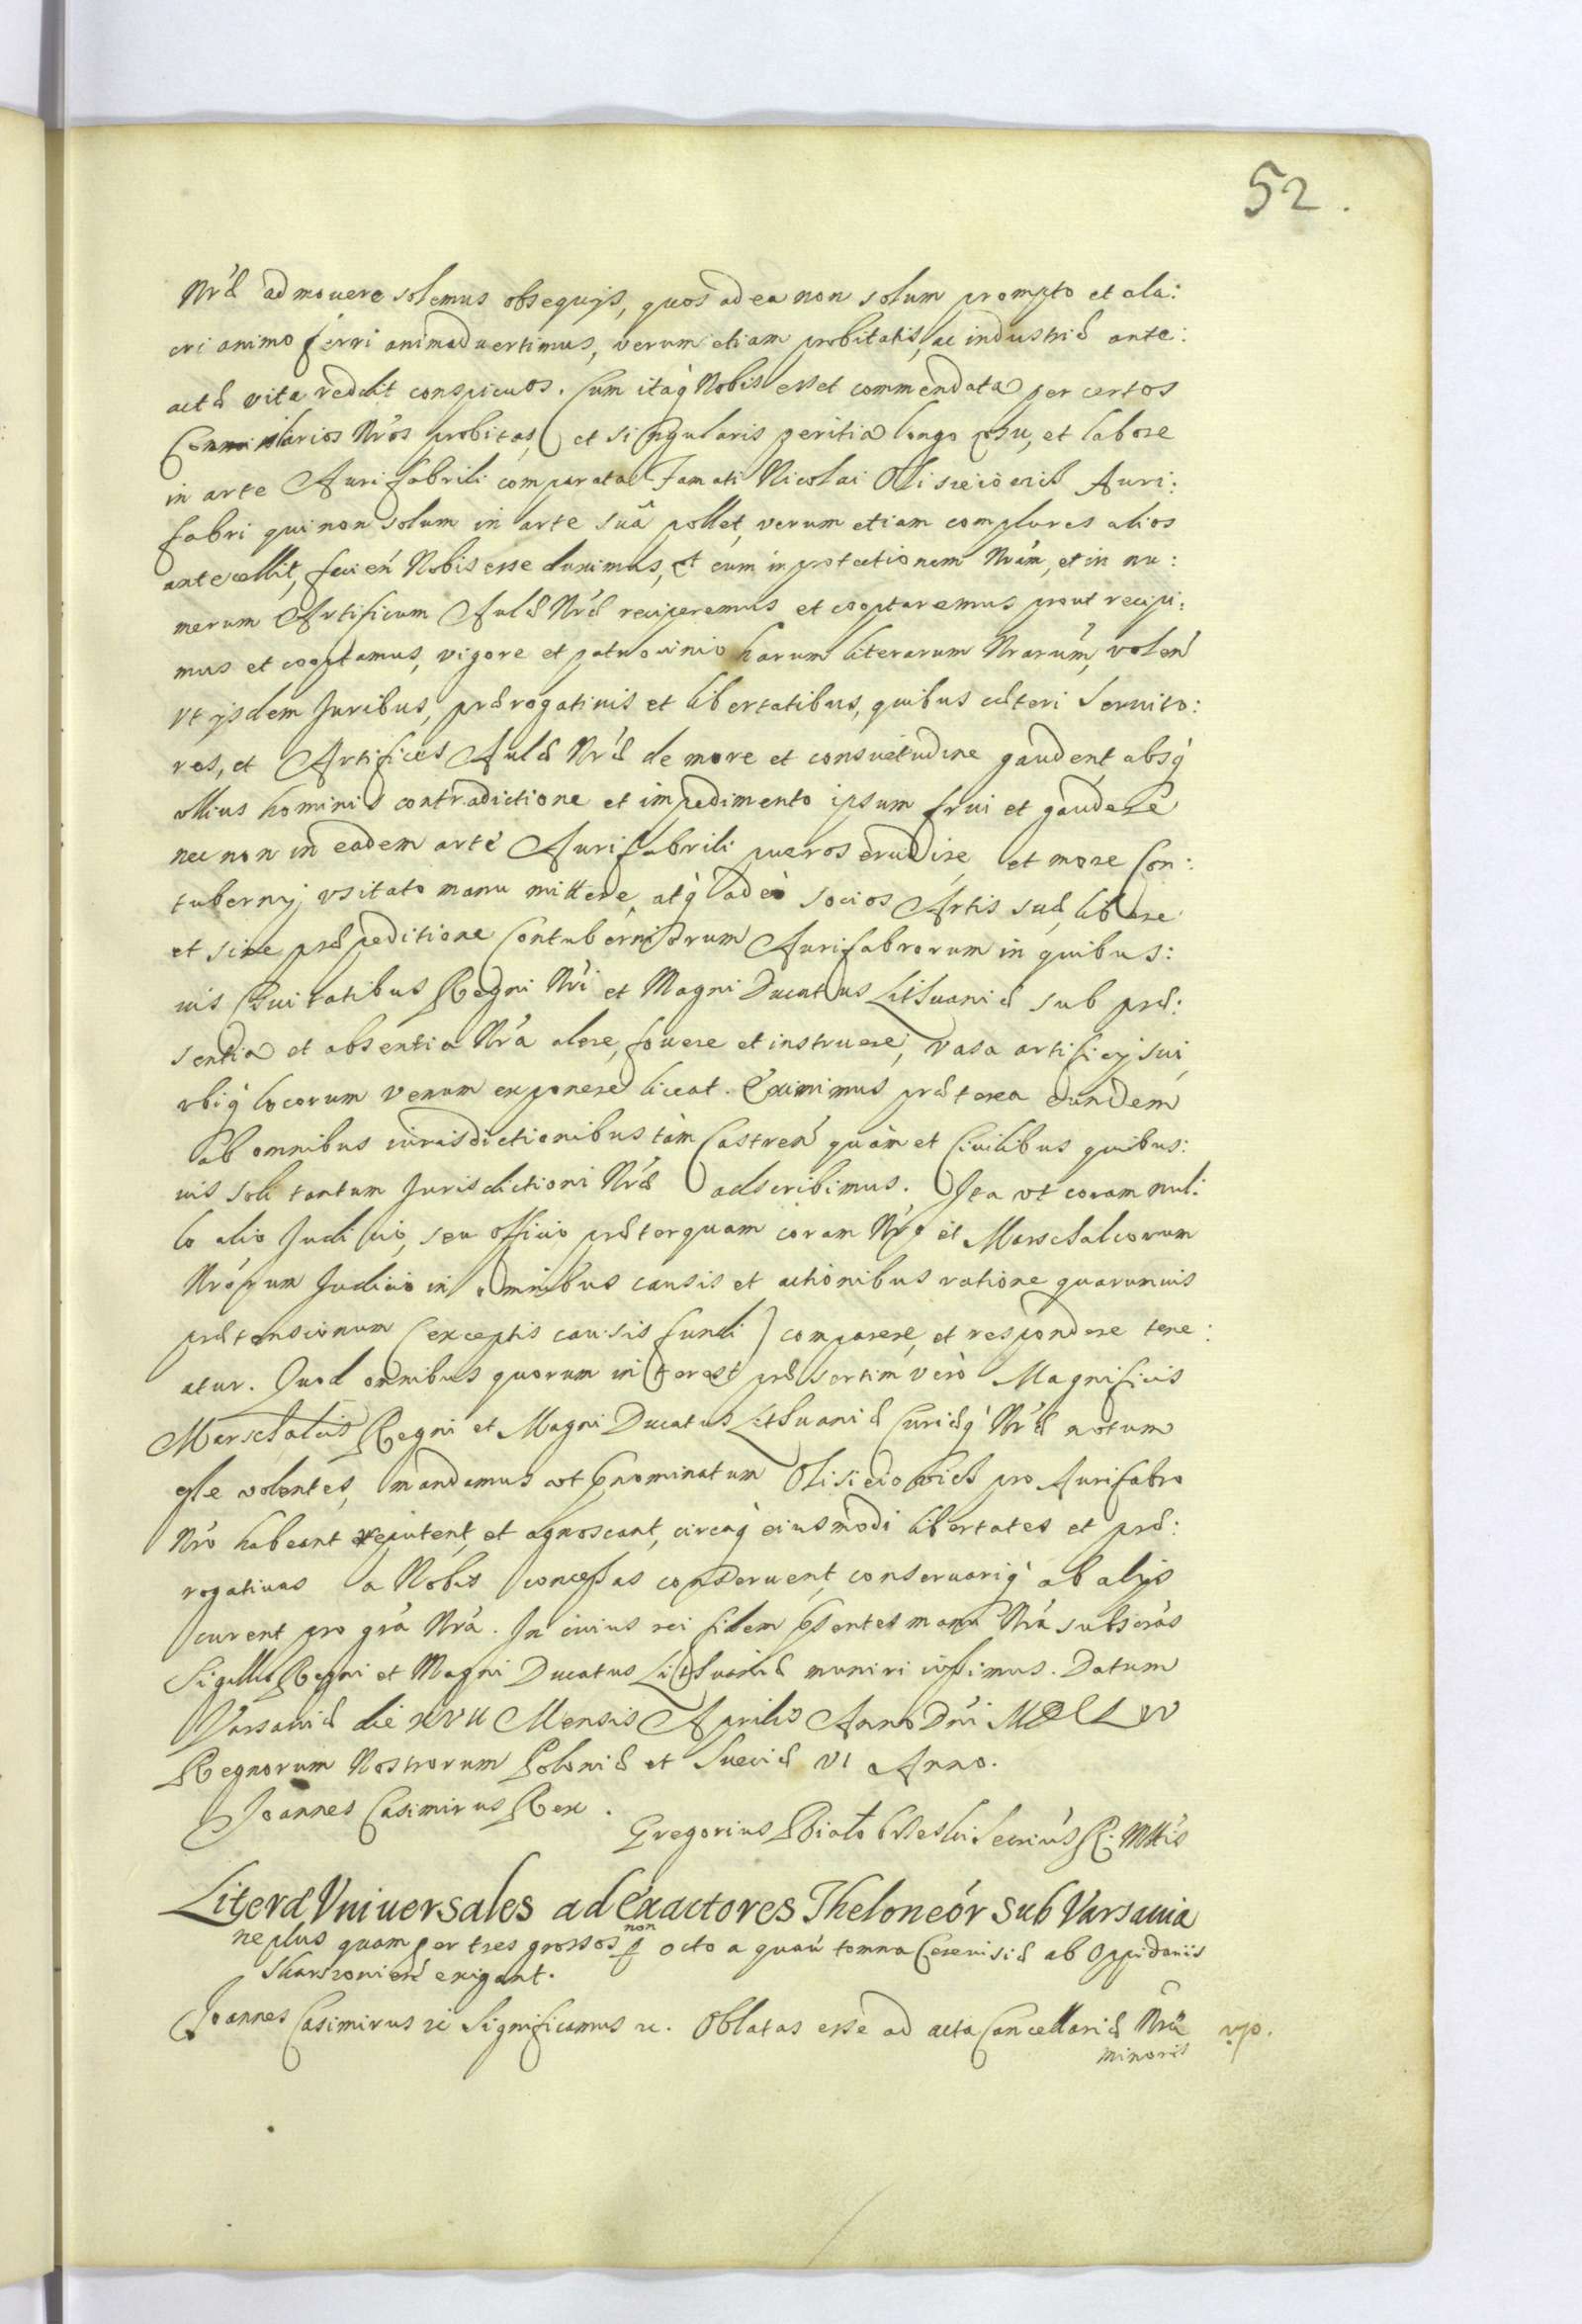 52.
Nræ admouere solemus obsequijs, quos ad ea non solum prompto et ala:
cri animo ferri animaduertimus, verum etiam probitatis, ac industriæ ante:
actæ vita reddit conspicuos. Cum itaq Nobis esset commendata per certos
Consiliarios Nros probitas, et singularis peritia longo usu, et labore
in arte Aurifabrili comparata Famati Nicolai Auri:
fabri qui non solum in arte suâ pollet, verum etiam complures alios
antecellit, facien Nobis esse duximus, ut eum in protectionem Nram, et in nu:
merum Artificum Aulæ Nræ reciperemus et cooptaremus prout recipi:
mus et cooptamus, vigore et patrocinio harum literarum Nrarum, volen
vt ijsdem Juribus, prærogatiuis et libertatibus, quibus cæteri Seruito:
res, et Artifices Aulæ Nræ de more et consuetudine gaudent, absq
ullius hominis contradictione et impedimento ipsum frui et gaudere
nec non in eadem arte Aurifabrili pueros erudire, et more Con:
tubernij vsitato manu mittere, atq adeò socios Artis suæ, libere
et sine præpeditione Contuberniorum Aurifabrorum in quibus:
uis Ciuitatibus Regni Nri et Magni Ducatus Lithuaniæ sub præ:
sentia et absentia Nra alere, fouere et instruere, vasa artificij sui
vbiq locorum venum exponere liceat. Eximimus præterea eundem
ab omnibus iurisdictionibus tàm Castren quàm et Ciuilibus quibus:
uis soli tantum Jurisdictioni Nræ adscribimus. Ita vt coram nul:
lo alio Judicio, seu officio præterquam coram Nro et Marschalcorum
Nrorum Judicio in omnibus causis et actionibus ratione quarumuis
prætensionum (exceptis causis fundi) comparere, et respondere tene:
atur. Quod omnibus quorum interest præsertim verò Magnificis
Marschalcis Regni et Magni Ducatus Lithuaniæ Curiæq Nræ notum
esse volentes, mandamus vt pnominatum pro Aurifabro
Nro habeant reputent, et agnoscant, circaq eiusmodi libertates et præ:
rogatiuas a Nobis concessas conseruent, conseruariq ab alijs
curent pro gra Nra. In cuius rei fidem psentes manu Nra subscras
Sigillis Regni et Magni Ducatus Lithuaniæ muniri iussimus. Datum
Varsauiæ die XVII Mensis Aprilis Anno Dni
Regnorum Nostrorum Poloniæ et Sueciæ VI Anno.
Joannes Casimirus Rex.
Gregorius Secrius R. Mttis
Literæ Vniuersales ad Exactores Theloneor sub Varsauia
ne plus quam per tres grossos non p octo a quauis tonna Cereuisiæ ab Oppidanis
exigant.
Joannes Casimirus Significamus Oblatas esse ad acta Cancellariæ Nræ
minoris